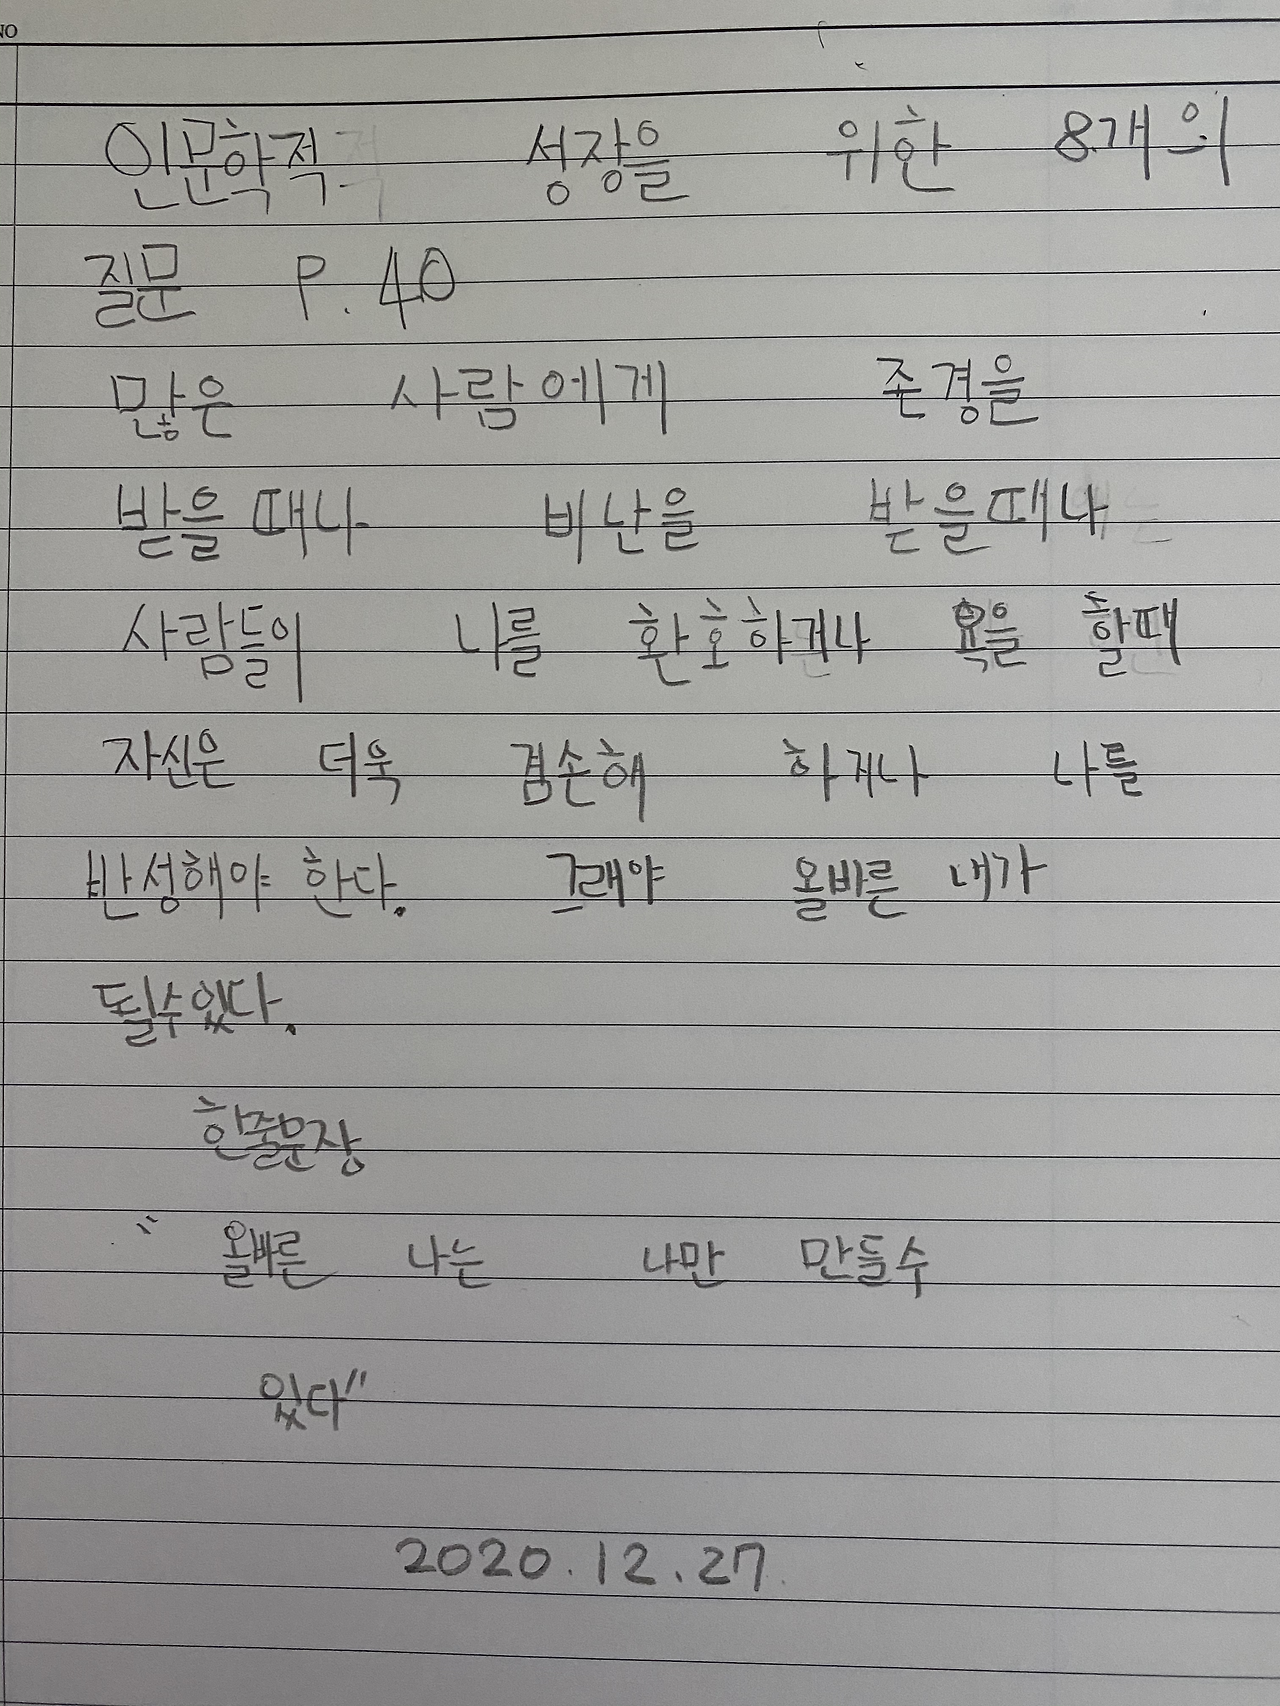 NO
인문학적 성장을 위한 8개의
질문 P.40
많은 사람에게 존경을
받을때나 비난을 받을때나
사람들이 나를 환호하거나 욕을 할때
자신은 더욱 겸손해 하거나 나를
반성해야 한다. 그래야 올바른 내가
될수있다.
한줄문장
" 올바른 나는 나만 만들수
있다"
2020.12.27.